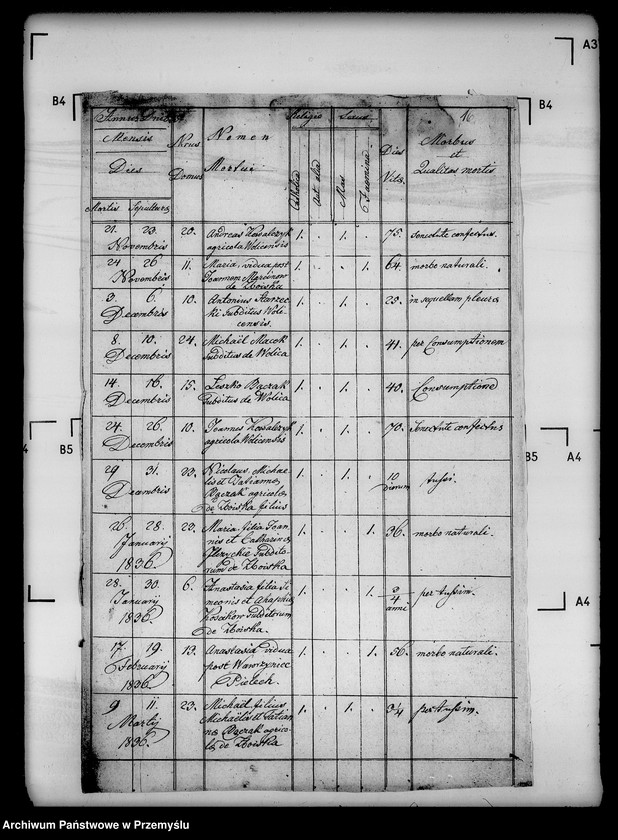 A3
B4
B4
16
Religio
Sexus
Mensis
Dies
Mortis Sepulturæ
Nrus
Domus
Nomen
Mortui
Catholica
Aut alia
Mas
Fæmina
Dies
Vitæ
Morbus
et
Qualitas mortis
21. 23. 20. Andreas Kowalczyk 1. . 1. . 75. Senectute confectus.
Novembris agricola Wolicensis
24 26 11. Maria vidua post 1. . . 1 64. morbo naturali.
Novembris Joannem Marcinow
de Zboiska
3. 6. 10. Antonius Starzec- 1. . 1. 25. in sequellam pleuræ
Decembris ki Subditus Woli-
censis.
8. 10. 24. Michaël Macok 1. . 1. . 41. per Consumptionem
Decembris Subditus de Wolica
14. 16. 15. Leszko Baczak 1. . 1. . 40. Consumptione
Decembris Subditus de Wolica
24. 26. 10. Joannes Kowalczyk 1. . 1. . 70. Senectute confectus
Decembris agricola Wolicensis
29 31. 23. Nicolaus, Michae- 1. . 1. . 10 tussi.
Decembris lis et Tatianna dierum
Baczak agricolæ
de Zboiska filius
26. 28. 22. Maria filia Joan- 1. . . 1. 36. morbo naturali.
Januarij nis et Catharina
1836. Subdito-
rum de Zboiska
28. 30. 6. Anastasia filia Si- 1. . . 1. 3/4 per tussim.
Januarij meonis et anni
1836. Subditorum
de Zboiska.
17. 19. 13. Anastasia vidua 1. . . 1. 56. morbo naturali.
Februarij post Wawrzyniec
1836. Pietech.
9 11. 23. Michaël filius 1. . 1. . 3/4 per tussim.
Martij Michaëlis et Tatian-
1836. næ Baczak agrico-
læ de Zboiska
B5
B5
A4
A4
Archiwum Państwowe w Przemyślu